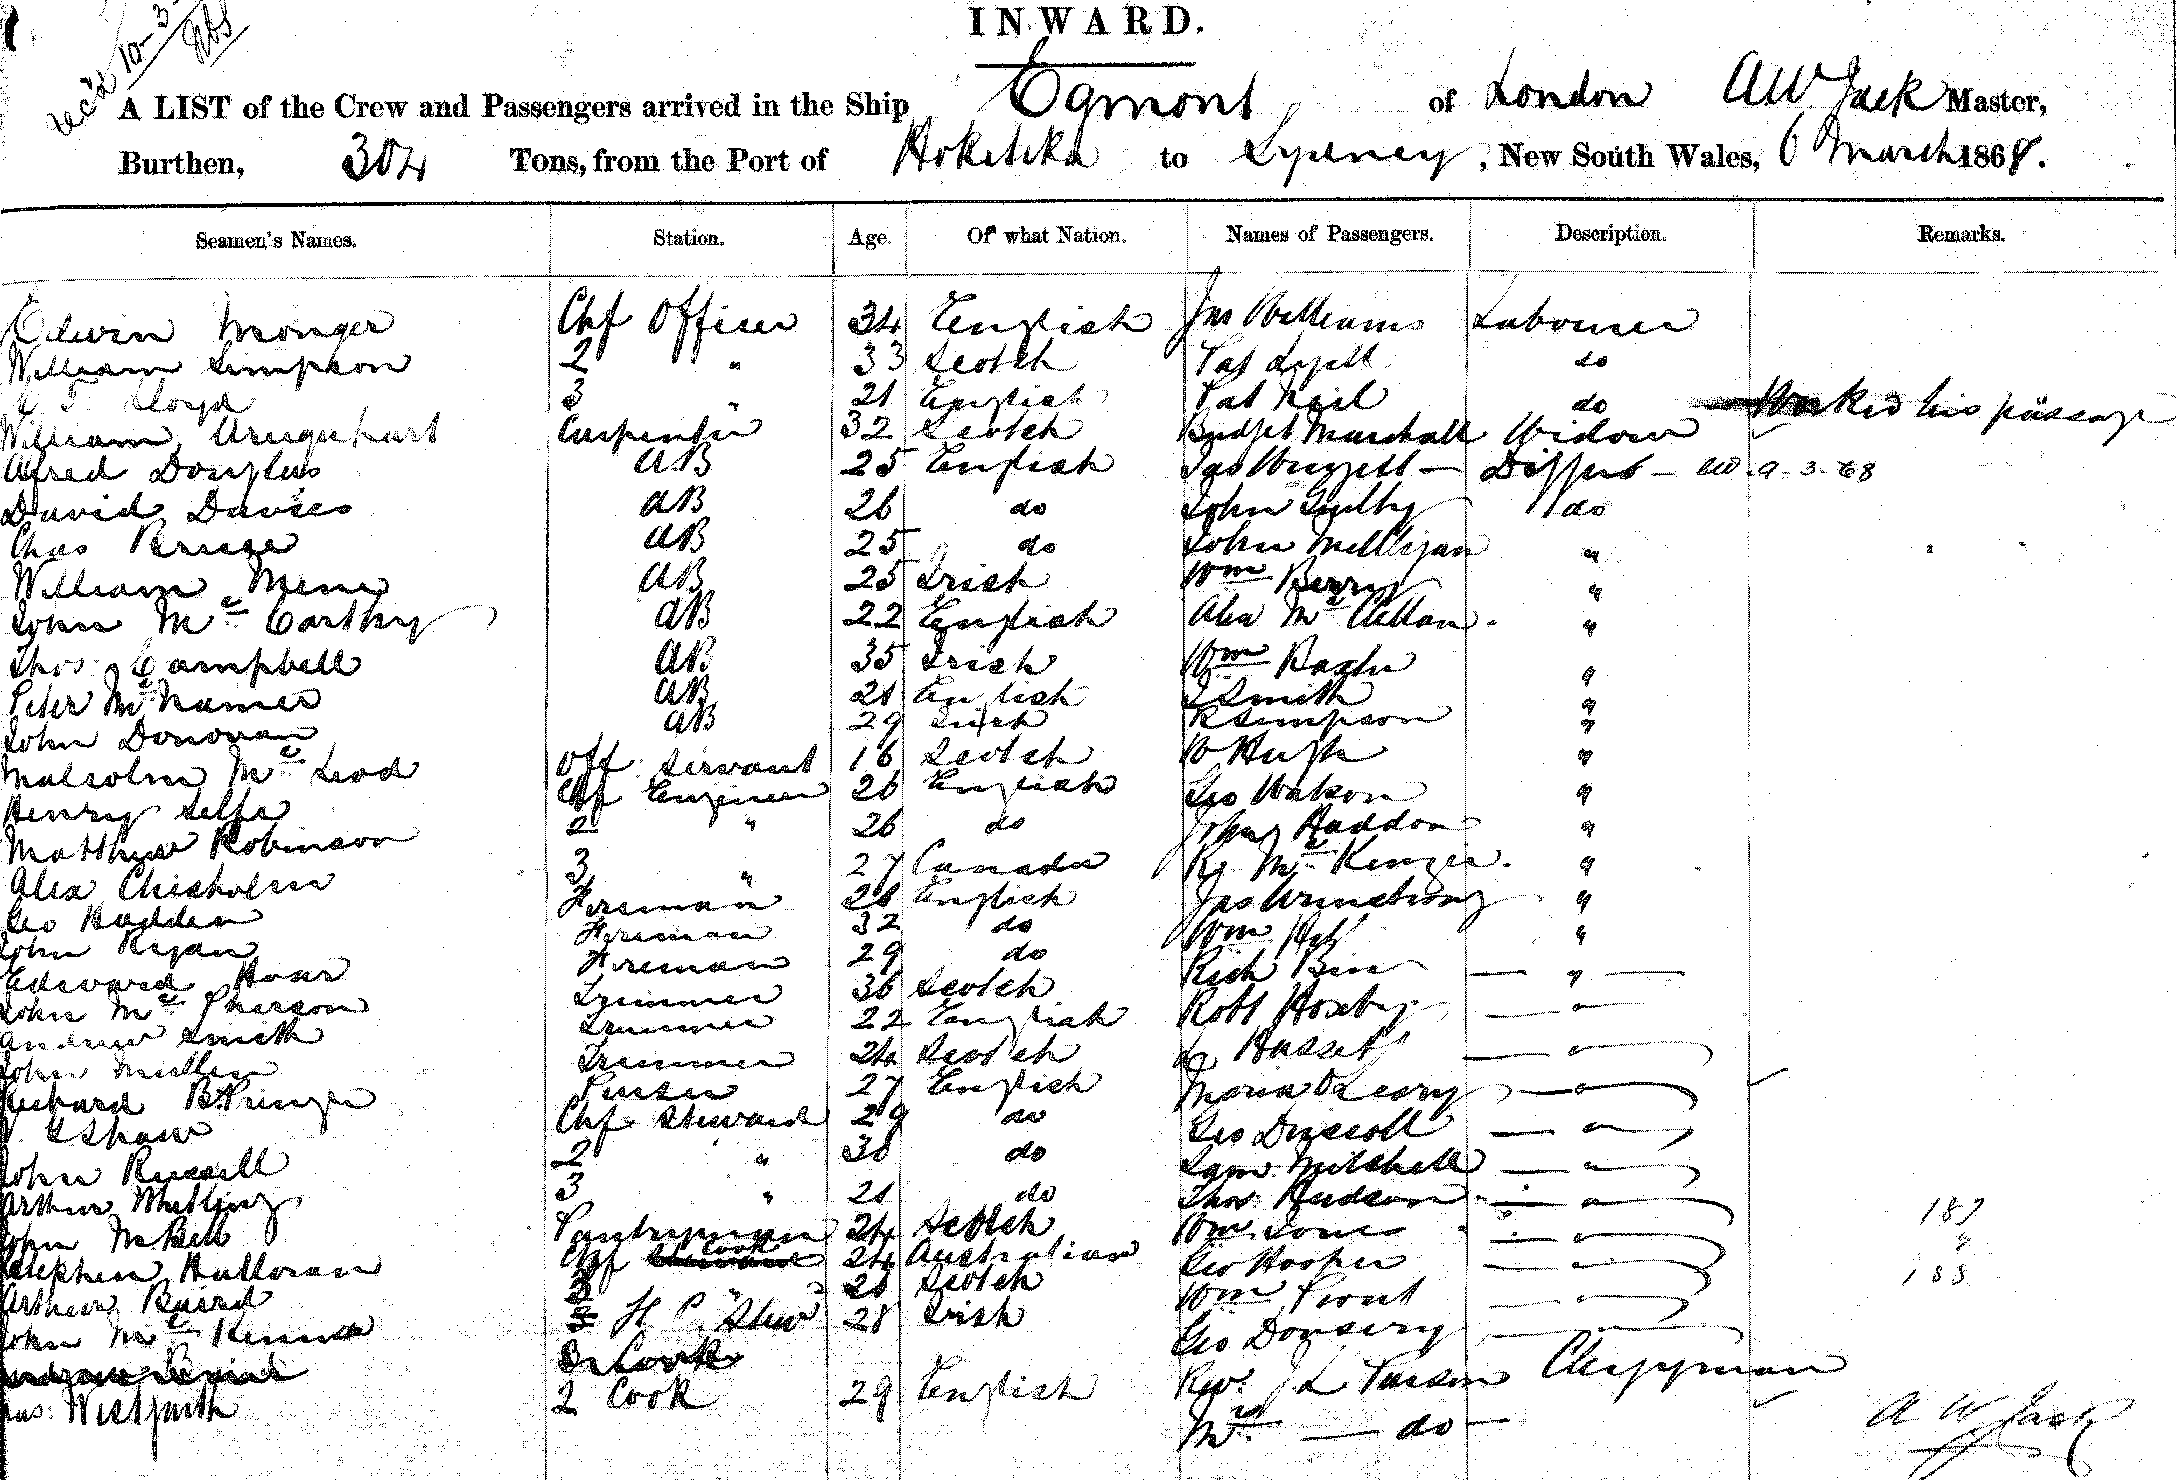 INWARD.
rec'd 10-3-
A LIST of the Crew and Passengers arrived in the Ship Egmont of London A W Jack Master,
Burthen, 304 Tons, from the Port of Hokitika to Sydney, New South Wales, 6 March 1868.
Seamen's Names. Station. Age. Of what Nation. Names of Passengers. Description. Remarks.
Edwin Monger Chf Officer 34 English Jas Williams Labourer
William Simpson 2 " 33 Scotch Pat Lyell do
Lloyd 3 " 21 English Pat Neil do Worked his passage
William Aruquhart Carpenter 32 Scotch Bridget Marshall Widow
Alfred Douglas AB 25 English Jas Diggers 9-3-68
David Davies AB 26 do John do
Chas AB 25 do John Milligan "
William AB 25 Irish Wm Berry "
John McCarthy AB 22 English Alex McClellan "
Thos Campbell AB 35 Irish Wm Baxter "
Peter McNamer AB 21 English J Smith "
John Donovan AB 29 Irish R Simpson "
Malcolm McLeod Off Servant 16 Scotch W Hugh "
Henry Selfe Chf Engineer 26 English Geo Watson "
Matthew Robinson 2 " 26 do John Haddon "
Alex Chisholm 3 " 27 Canada R McKenzie "
Geo Badden Fireman 28 English Jas Armstrong "
John Ryan Fireman 32 do Wm "
Edward Hoar Fireman 29 do Rich "
John McPherson Trimmer 36 Scotch Robt Hoxby "
Andrew Smith Trimmer 22 English Hasset "
John Miller Trimmer 24 Scotch Maria O Leary "
Richard B Pringle Purser 27 English Geo Driscoll "
Shaw Chf Steward 29 do Sam Mitchell "
John Russell 2 " 38 do Thos Hudson "
Arthur Whitling 3 " 21 do Wm Jones "
John McBell Pantryman 24 Scotch Geo Hooper "
Stephen Halloran Chf Cook 24 Australian Wm Prout "
Arthur Baird 2 " 28 Scotch Geo
John McKenna F C Stew 28 Irish Rev J L Parson Clergyman
Westgarth 2 Cook 29 English Mrs do
187
"
188
A W Jack